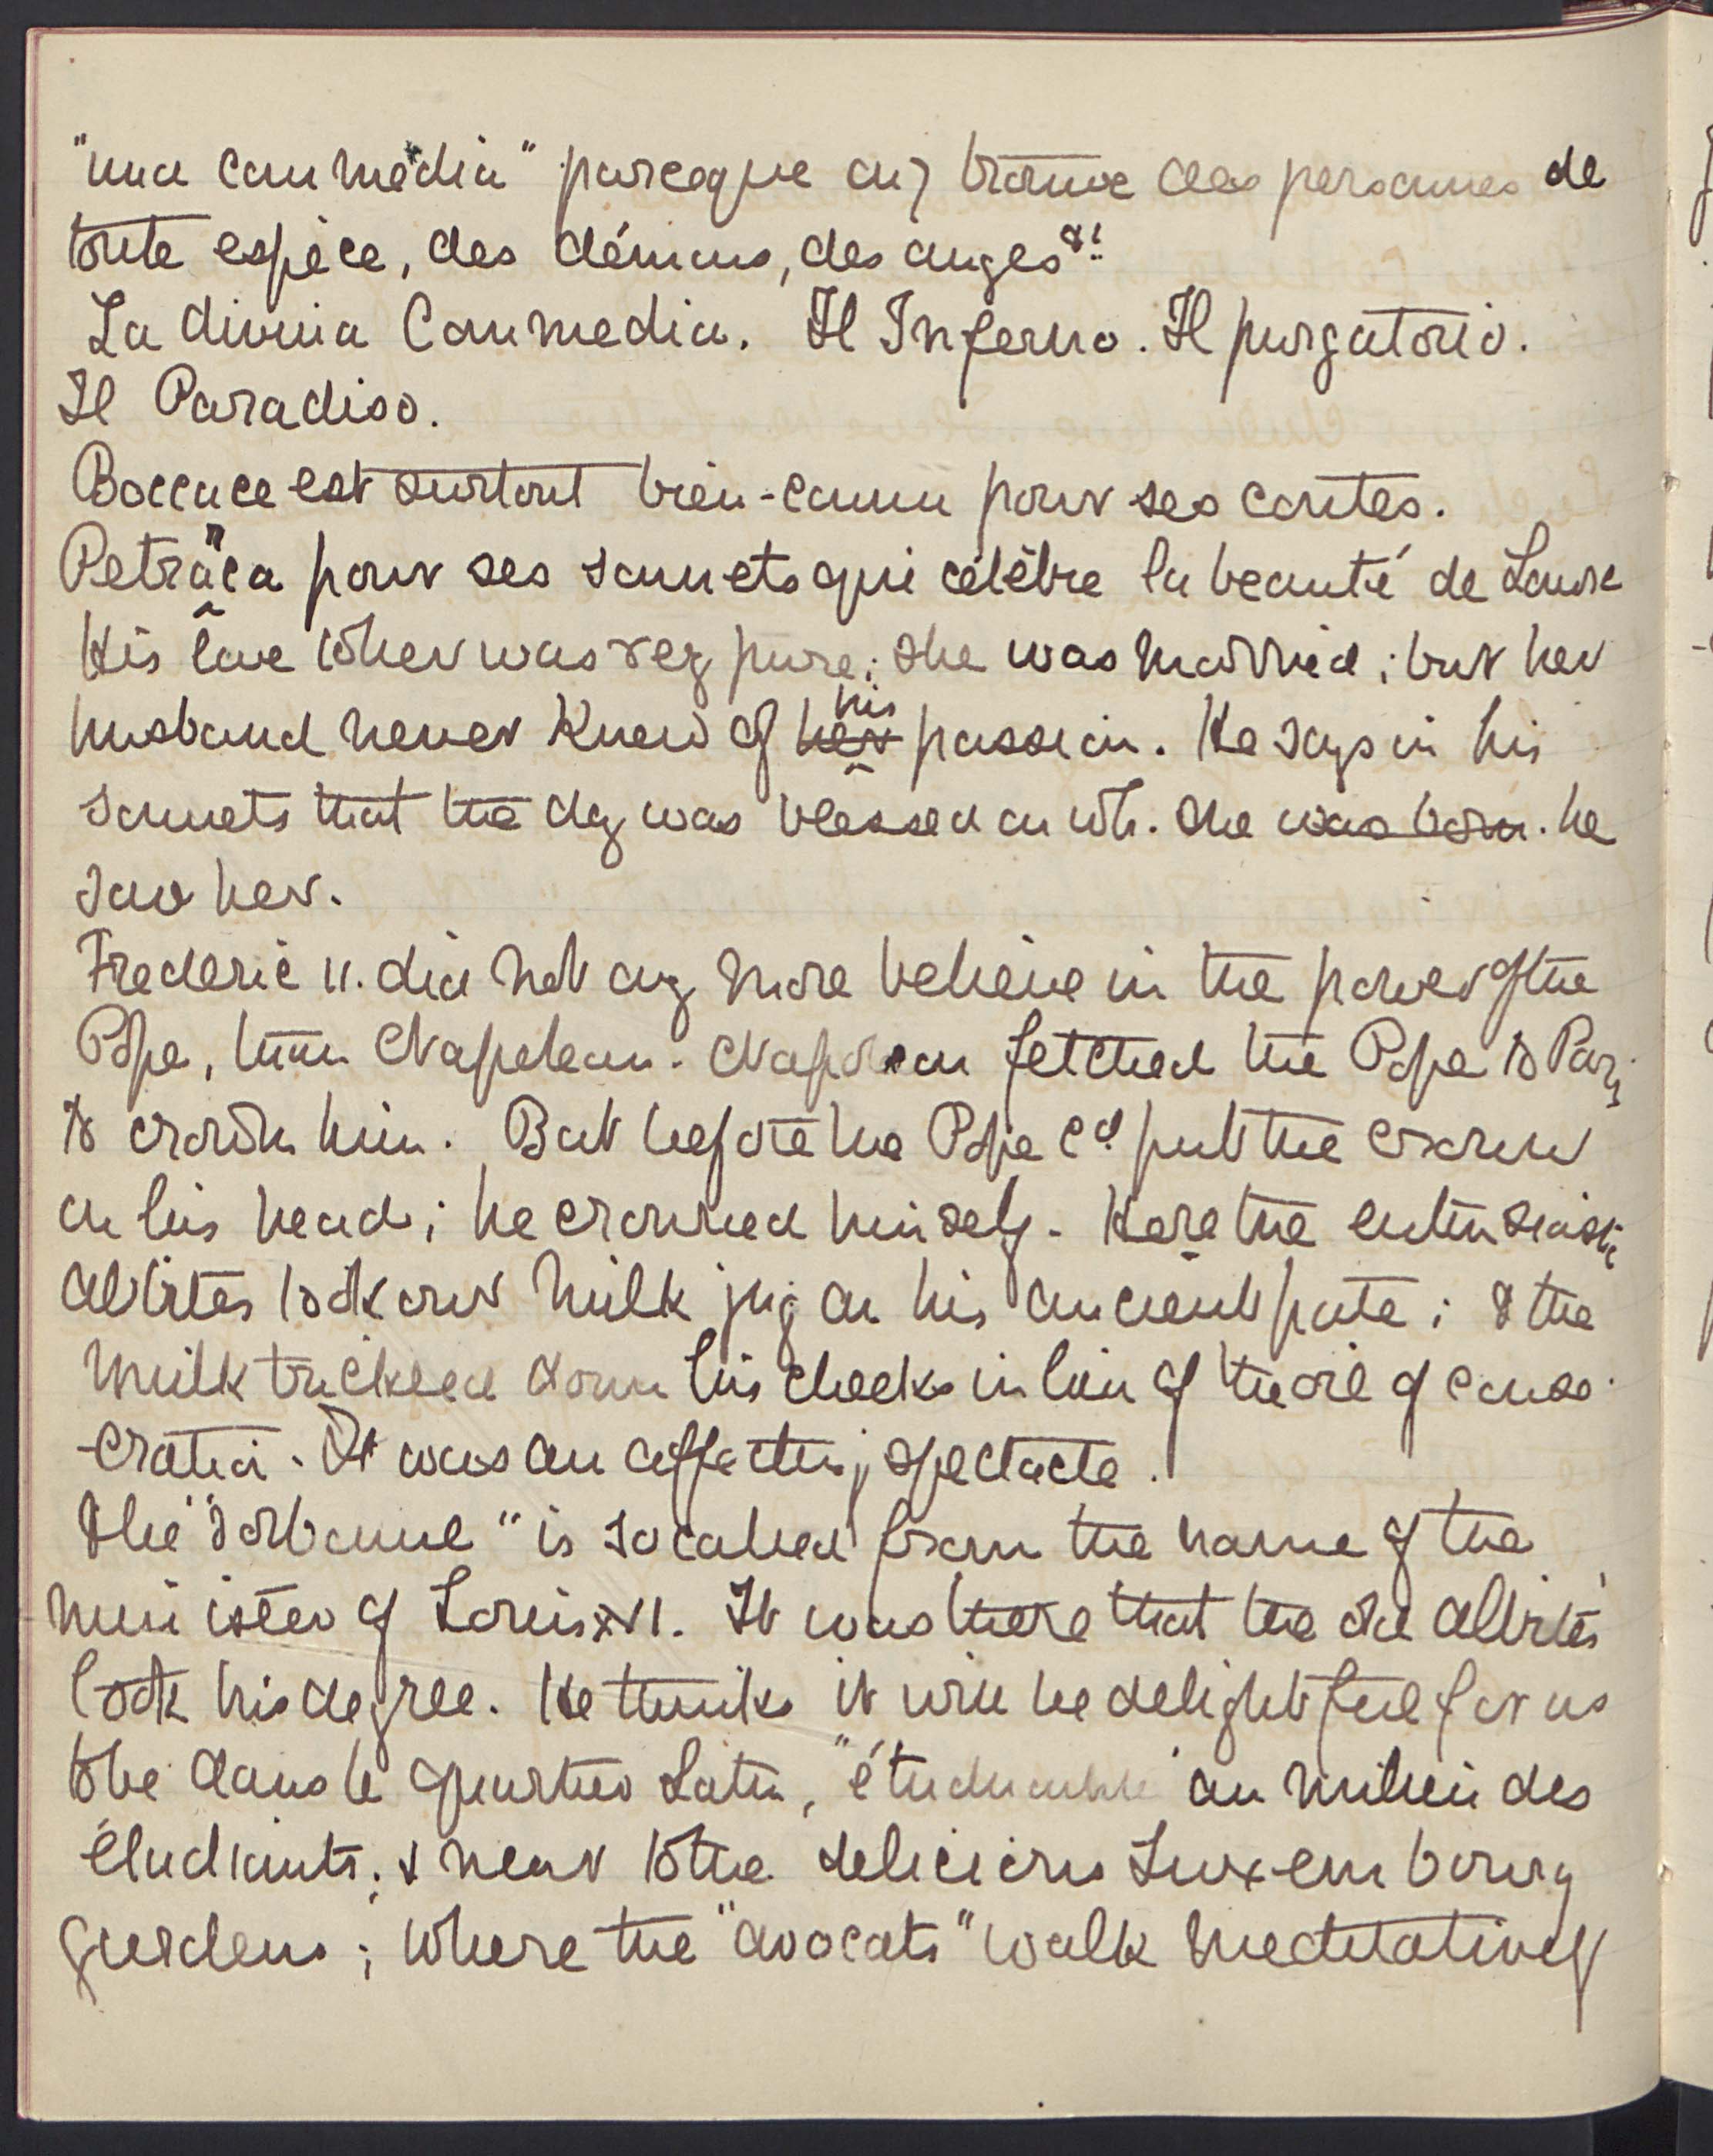 "una commèdia" parceque on y trouve des personnes de
toute espèce, des démons, des anges &c.
La divina Commedia. Il Inferno. Il purgatorio.
Il Paradiso.
Boccace est surtout bien-connu pour ses contes.
Petraca pour ses sonnets qui célèbre la beauté de Laure
His love to her was very pure; she was married; but her
husband never knew of her his passion. He says in his
sonnets that the day was blessed on wh. she was born. he
saw her.
Frederic II. did not any more believe in the power of the
Pope, than Napoleon. Napoleon fetched the Pope to Paris
to crown him. But before the Pope cd put the crown
on his head; he crowned himself. Here the enthusiastic
Albités took our milk jug on his ancient pate; & the
milk trickled down his cheeks in lieu of the oil of conse-
-cration. It was an affecting spectacle.
The "Sorbonne" is so called from the name of the
minister of Louis XVI. It was there that the old Albités
took his degree. He thinks it will be delightful for us
to be dans le quartier Latin, "étudiants au milieu des
étudiants; & near to the delicious Luxembourg
gardens; where the "avocats" walk meditatively